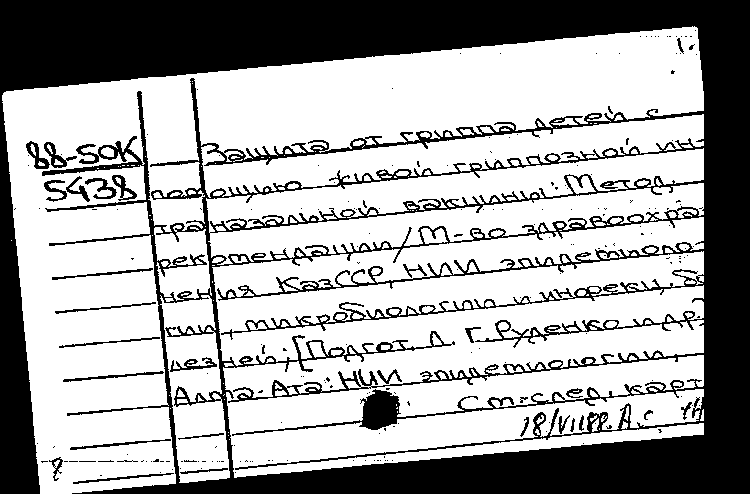 1.
88-50К
5438
Защита от гриппа детей с
помощью живой гриппозной ин-
траназальной вакцины: Метод.
рекомендации/М-во здравоохра-
нения КазССР, НИИ эпидемиоло-
гии, микробиологии и инфекц. бо-
лезней; [Подгот. Л. Г. Руденко и др.]
Алма-Ата: НИИ эпидемиологии,
См. след. карт
18/VII88. А.с.